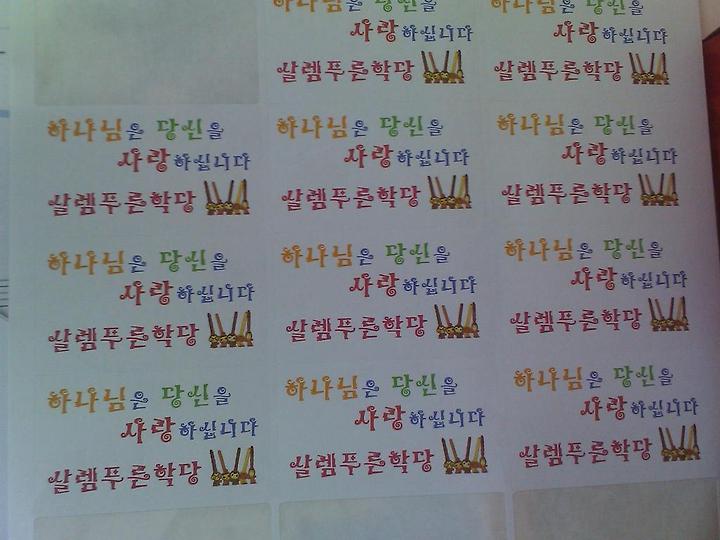 하나님은 당신을 하나님은 당신을
사랑하십니다 사랑하십니다
살렘푸른학당 살렘푸른학당
하나님은 당신을 하나님은 당신을 하나님은 당신을
사랑하십니다 사랑하십니다 사랑하십니다
살렘푸른학당 살렘푸른학당 살렘푸른학당
하나님은 당신을 하나님은 당신을 하나님은 당신을
사랑하십니다 사랑하십니다 사랑하십니다
살렘푸른학당 살렘푸른학당 살렘푸른학당
하나님은 당신을 하나님은 당신을 하나님은 당신을
사랑하십니다 사랑하십니다 사랑하십니다
살렘푸른학당 살렘푸른학당 살렘푸른학당